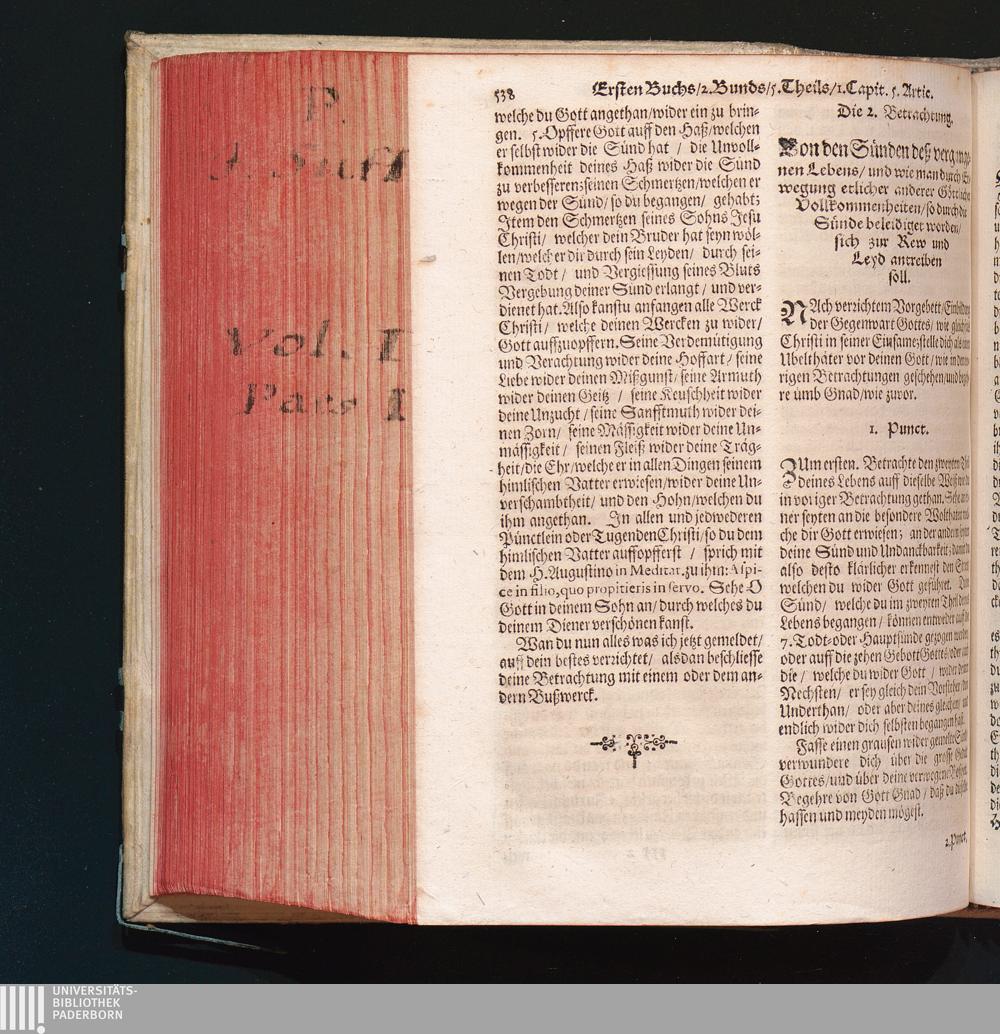 P.
J. Suff
Vol. I
Pars I
538 Ersten Buchs/2. Bunds/5. Theils/1. Capit. 5. Artic.
welche du Gott angethan/wider ein zu brin-
gen. 5. Opffere Gott auff den Haß/welchen
er selbst wider die Sünd hat / die Unvoll-
kommenheit deines Haß wider die Sünd
zu verbesseren; seinen Schmertzen/welchen er
wegen der Sünd/ so du begangen/ gehabt;
Item den Schmertzen seines Sohns Jesu
Christi/ welcher dein Bruder hat seyn wöl-
len/welcher dir durch sein Leyden/ durch sei-
nen Todt / und Vergiessung seines Bluts
Vergebung deiner Sünd erlangt / und ver-
dienet hat. Also kanstu anfangen alle Werck
Christi / welche deinen Wercken zu wider/
Gott auffzuopffern. Seine Verdemütigung
und Verachtung wider deine Hoffart/ seine
Liebe wider deinen Mißgunst/ seine Armuth
wider deinen Geitz / seine Keuschheit wider
deine Unzucht / seine Sanfftmuth wider dei-
nen Zorn/ seine Mässigkeit wider deine Un-
mässigkeit / seinen Fleiß wider deine Träg-
heit/die Ehr/welche er in allen Dingen seinem
himlischen Vatter erwiesen/wider deine Un-
verschambtheit/ und den Hohn/welchen du
ihm angethan. In allen und jedwederen
Pünctlein oder Tugenden Christi/ so du dem
himlischen Vatter auffopfferst / sprich mit
dem H. Augustino in Meditat. zu ihm: Aspi-
ce in filio, quo propitieris in servo. Sehe O
Gott in deinem Sohn an/ durch welches du
deinem Diener verschönen kanst.
Wan du nun alles was ich jetzt gemeldet/
auff dein bestes verrichtet/ alsdan beschliesse
deine Betrachtung mit einem oder dem an-
dern Bußwerck.
Die 2. Betrachtung.
Von den Sünden deß vergange-
nen Lebens/ und wie man durch Er-
wegung etlicher anderer Göttlicher
Vollkommenheiten/ so durch die
Sünde beleidiget worden/
sich zur Rew und
Leyd antreiben
soll.
NAch verrichtem Vorgebett/Einbildung
der Gegenwart Gottes/ wie gleichfals
Christi in seiner Einsame; stelle dich als einen
Ubelthäter vor deinen Gott/ wie in den vo-
rigen Betrachtungen geschehen/und begeh-
re umb Gnad/wie zuvor.
1. Punct.
ZUm ersten. Betrachte den zweyten Theil
deines Lebens auff dieselbe Weiß wie du
in voriger Betrachtung gethan. Sehe an ei-
ner seyten an die besondere Wolthaten/ wel-
che dir Gott erwiesen; an der anderen seyten
deine Sünd und Undanckbarkeit; damit du
also desto klärlicher erkennest den
welchen du wider Gott geführet. Die
Sünd/ welche du im zweyten Theil deines
Lebens begangen/ können entweder auff die
7. Todt-oder Hauptsünde gezogen werden/
oder auff die zehen Gebott Gottes/oder auff
die / welche du wider Gott / wider deinen
Nechsten/ er sey gleich dein Vorsteher/ dein
Underthan/ oder aber deines gleichen/ und
endlich wider dich selbsten begangen hast.
Fasse einen grausen wider gemelte Sünd/
verwundere dich über die grosse
Gottes/und über deine verwegene Boßheit.
Begehre von Gott Gnad / daß du dieselbe
hassen und meyden mögest.
2. Punct.
UNIVERSITÄTS-
BIBLIOTHEK
PADERBORN